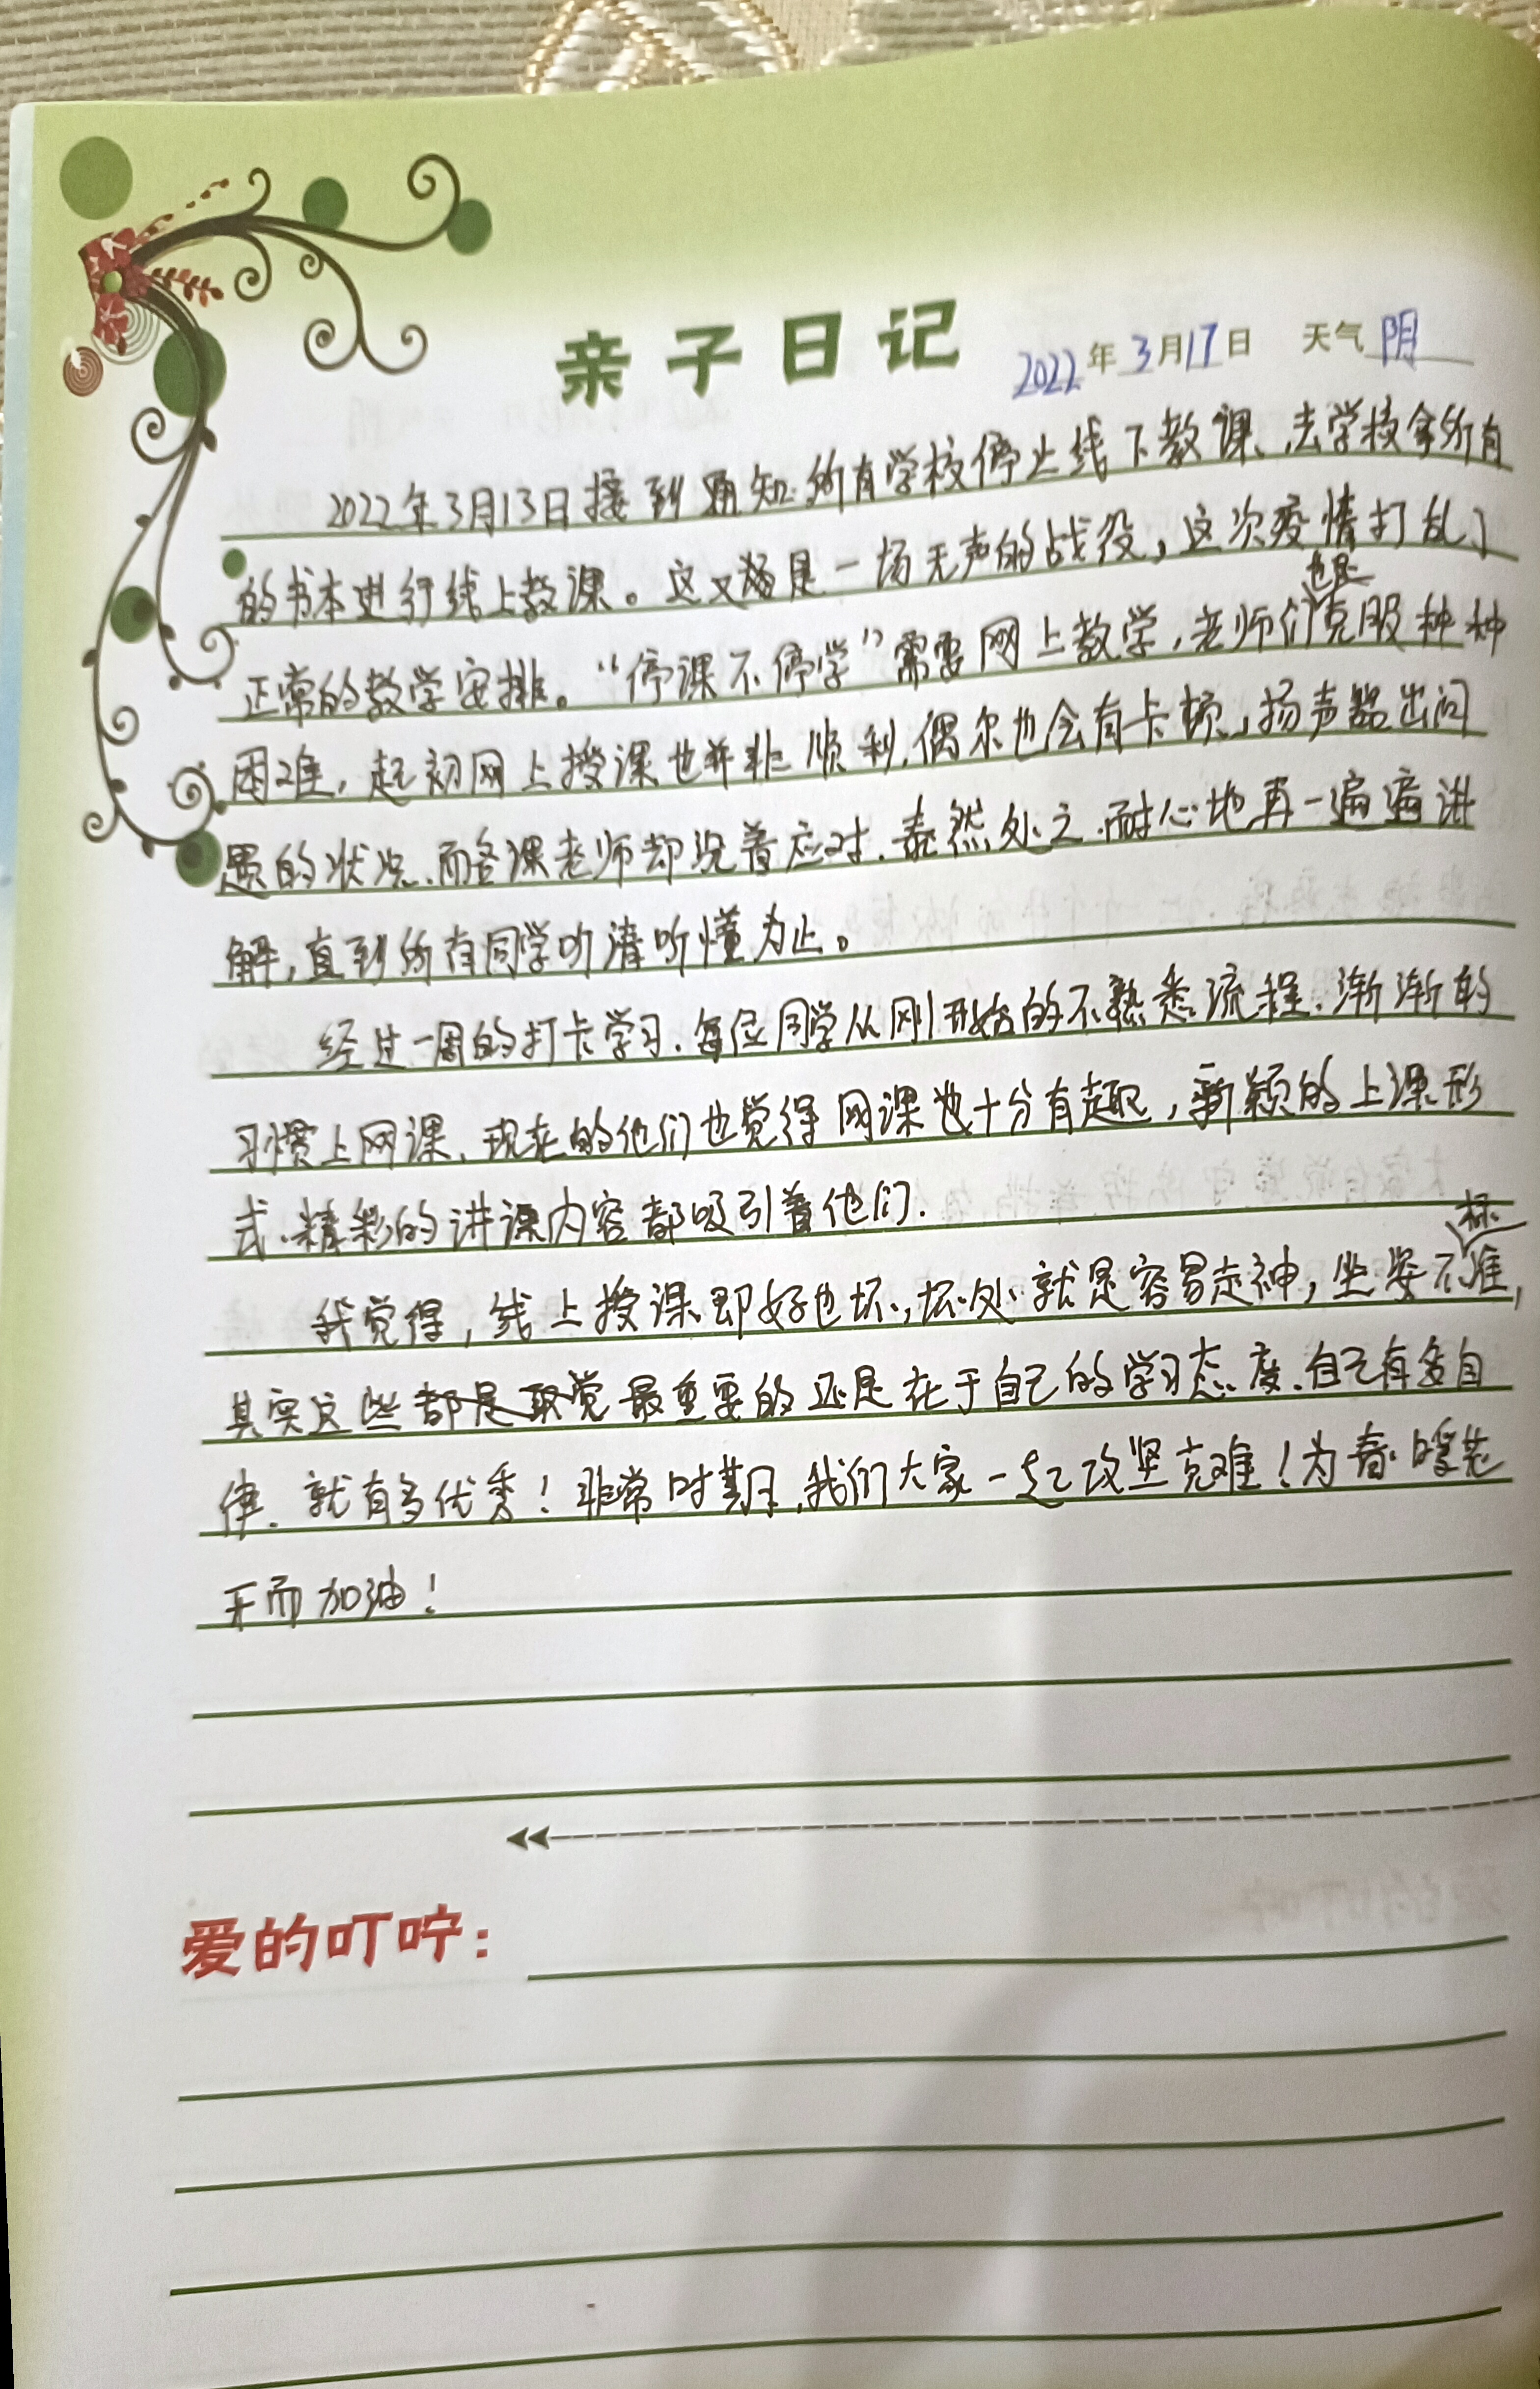 亲子日记 2022年3月17日 天气 阴
2022年3月13日接到通知所有学校停止线下教课、去学校拿所有
的书本进行线上教课。这又是一场无声的战役，这次疫情打乱了
正常的教学安排。“停课不停学”需要网上教学，老师们也是克服种种
困难，起初网上授课也并非顺利，偶尔也会有卡顿、扬声器出问
题的状况、而各课老师却沉着应对、泰然处之、耐心地再一遍遍讲
解，直到所有同学听清听懂为止。
经过一周的打卡学习、每位同学从刚开始的不熟悉流程、渐渐的
习惯上网课、现在的他们也觉得网课也十分有趣，新颖的上课形
式、精彩的讲课内容都吸引着他们.
我觉得，线上授课即好也坏，坏处就是容易走神，坐姿不标准，
其实这些都是最重要的还是在于自己的学习态度、自己有多自
律、就有多优秀！非常时期，我们大家一起攻坚克难！为春暖花
开而加油！
爱的叮咛：